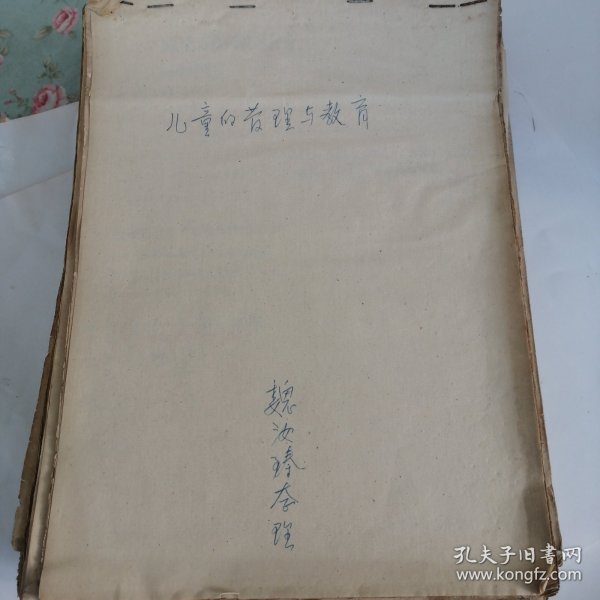 儿童的管理与教育
魏汝臻
孔夫子旧书网
www.kongfz.com